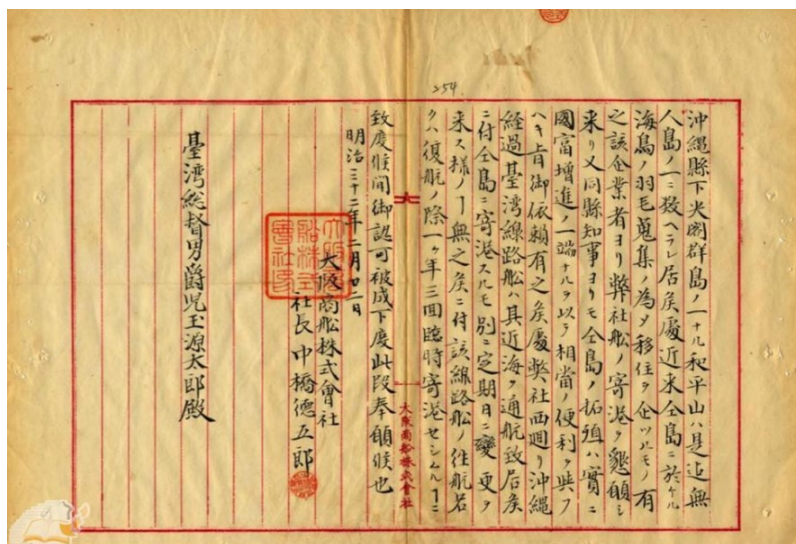 254
沖縄縣下尖閣群島ノ一ナル和平山ハ是迠無
人島ノ一ニ数ヘラレ居候處近来仝島ニ於ケル
海鳥ノ羽毛蒐集ノ為メ移住ヲ企ツルモノ有
之該企業者ヨリ弊社船ノ寄港ヲ懇願シ
来リ又同縣知事ヨリモ仝島ノ拓殖ハ實ニ
國富増進ノ一端ナルヲ以テ相當ノ便利ヲ與フ
ヘキ旨御依頼有之候處弊社西廻リ沖縄
経過臺湾線路船ハ其近海ヲ通航致居候
ニ付仝島ニ寄港スルモ別ニ定期日ニ変更ヲ
来ス様ノヿ無之候ニ付該線路船ノ往航若
クハ復航ノ際一ヶ年三回臨時寄港セシムルヿニ
大阪商船株式會社
致度候間御認可被成下度此段奉願候也
明治三十二年二月廿二日
大阪商船株式會社
社長中橋徳五郎
大阪商船株式會社印
臺湾総督男爵児玉源太郎殿